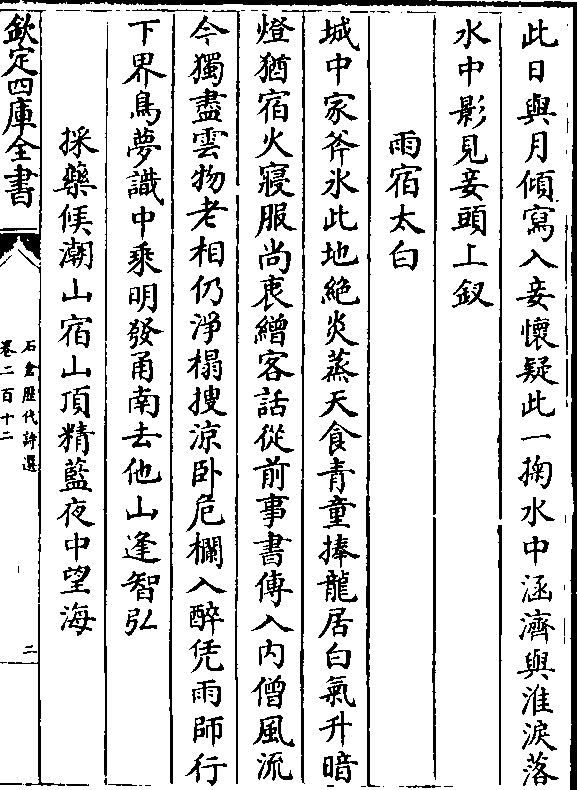 此日與月傾寫入妾懷疑此一掬水中涵濟與淮淚落
水中影見妾頭上釵
雨宿太白
城中家斧氷此地絶炎蒸天食青童捧龍居白氣升暗
燈猶宿火寢服尚衷繒客話從前事書傳入内僧風流
今獨盡雲物老相仍淨榻搜涼卧危欄入醉凭雨師行
下界鳥夢識中乘明發甬南去他山逢智弘
採藥候潮山宿山頂精藍夜中望海
欽定四庫全書
石倉歴代詩選
卷二百十二
二